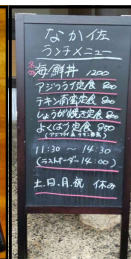 なか佐
ランチメニュー
海鮮丼 1200
アジフライ定食 800
チキン南蛮定食 800
しょうが焼き定食 800
よくばり定食 950
11:30 ～ 14:30
(ラストオーダー 14:00)
土、日、月、祝 休み